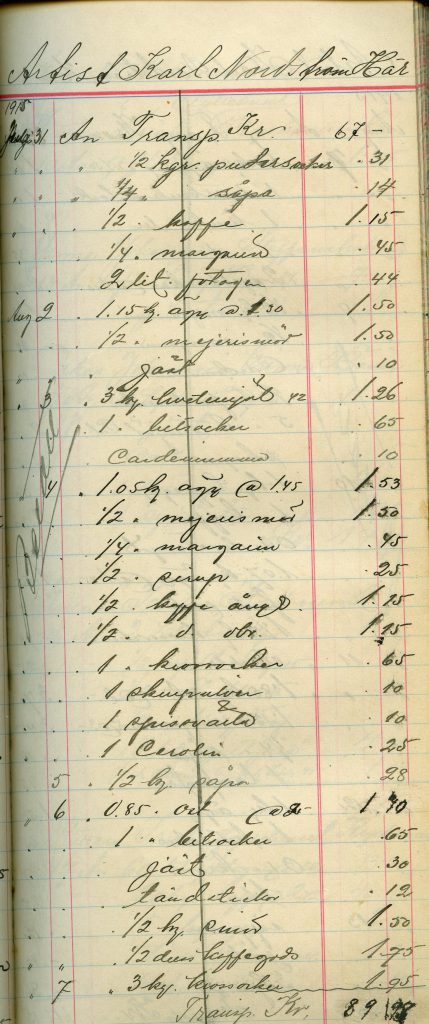 Artist Karl Nordström Här
1915
Aug 31 An Transp. Kr. 67 -
" " " 1/2 kgr. pudersocker . 31
" " " 1/4 " såpa . 14
" " . 1/2 . kaffe 1. 15
. . . 1/4 . margarin . 45
2 lit. fotogen . 44
Aug 2 . 1.15 k. ägg a 1.30 1. 50
. . . 1/2 . mejerismör 1. 50
jäst . 10
. 3 . 3 kg. hvetemjöl 42 1. 26
. . . 1 . bitsocker . 65
Cardemumma . 10
. 4 . 1.05 k. ägg @ 1.45 1. 53
1/2 . mejerismör 1. 50
. 1/4 . margarin . 45
. 1/2 . sirup . 25
1/2 . kaffe ångb. 1. 15
1/2 . d. obr. 1. 15
. . 1 . krossocker . 65
. . 1 skurpulver . 10
. . 1 spissvärta . 10
. . 1 Cerolin . 25
5 . 1/2 kg. såpa . 28
" 6 . 0.85 . ost @ 2- 1. 70
. . . 1 " bitsocker . 65
jäst . 30
tändstickor . 12
. . 1/2 kg. smör 1. 50
" " 1/2 kaffegods 1. 75
" 7 . 3 kg. krossocker 1. 95
Transp. Kr. 89